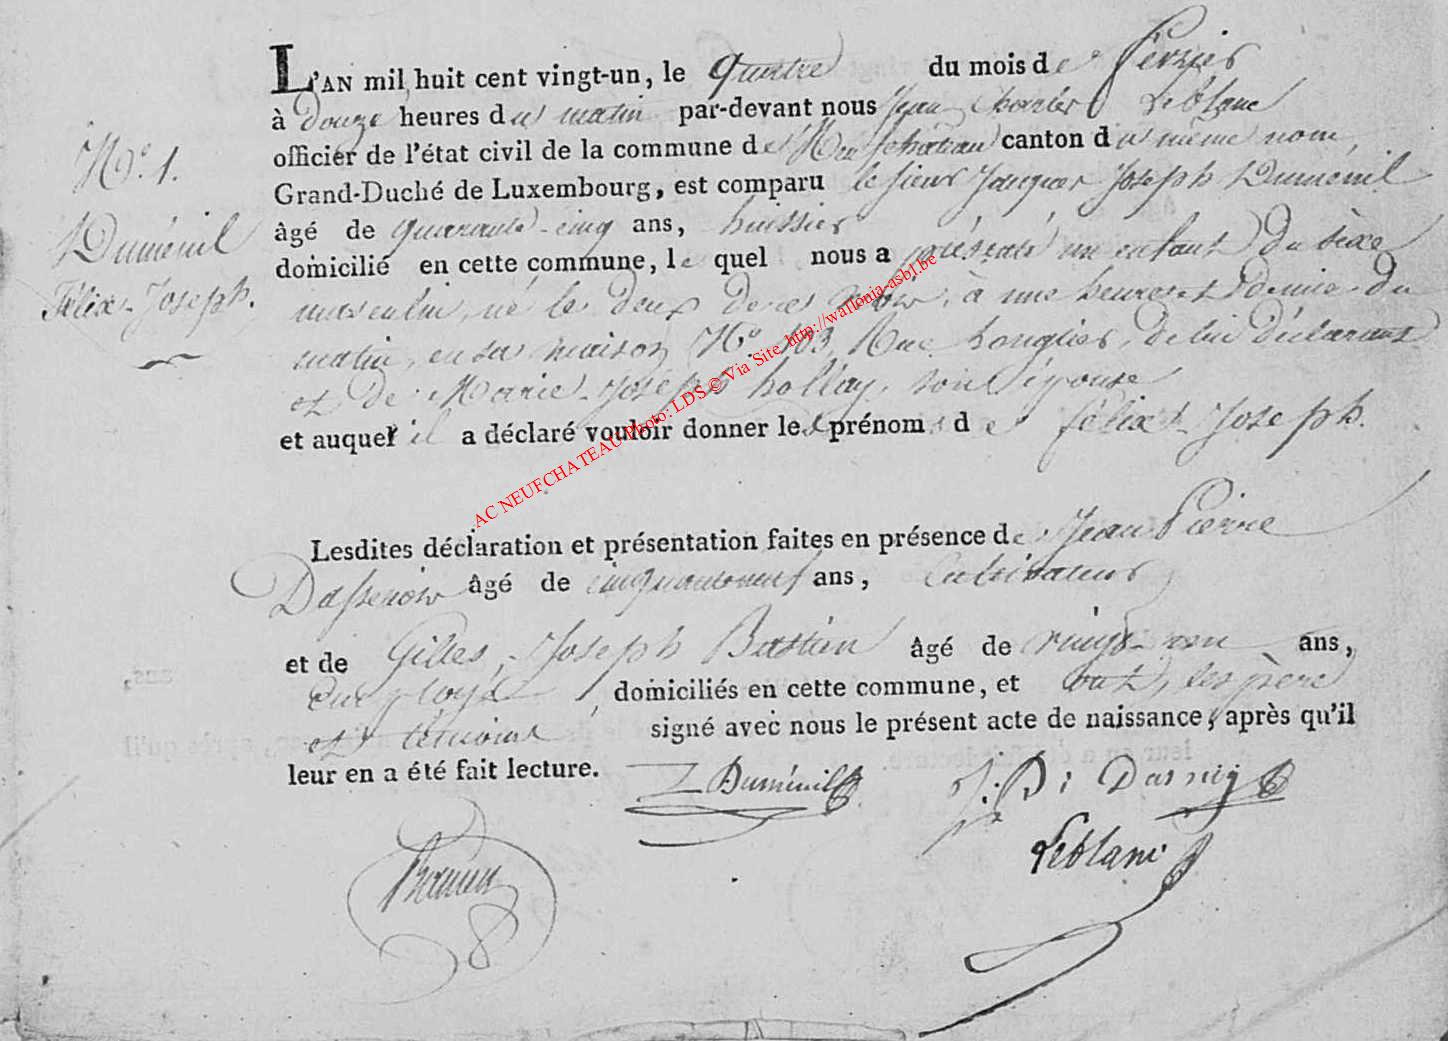 L'AN mil huit cent vingt-un, le quatre du mois de février
à douze heures du matin par-devant nous Jean Charles Leblanc
officier de l'état civil de la commune de Neufchateau canton du même nom,
N.° 1.
Grand-Duché de Luxembourg, est comparu le sieur Jacques Joseph Duménil
Duménil
âgé de quarante-cinq ans, huissier
domicilié en cette commune, lequel nous a présenté un enfant du sèxe
Félix-Joseph.
masculin, né le deux de ce mois, à une heure et demie du
matin, en sa maison N.° 103, Rue, de lui déclarant
et de Marie-Joséph hollay, son épouse
et auquel il a déclaré vouloir donner les prénoms de félix-Joseph.
AC NEUFCHATEAU Photo: LDS © Via Site http://wallonia-asbl.be
Lesdites déclaration et présentation faites en présence de Jean Pierre
Dassenoy âgé de cinquanteneuf ans, Cultivateur
et de Gilles-Joseph Bastien âgé de vingt-un ans,
employé, domiciliés en cette commune, et ont, les père
et témoins signé avec nous le présent acte de naissance, après qu'il
leur en a été fait lecture. Duménil J: P:
Leblanc